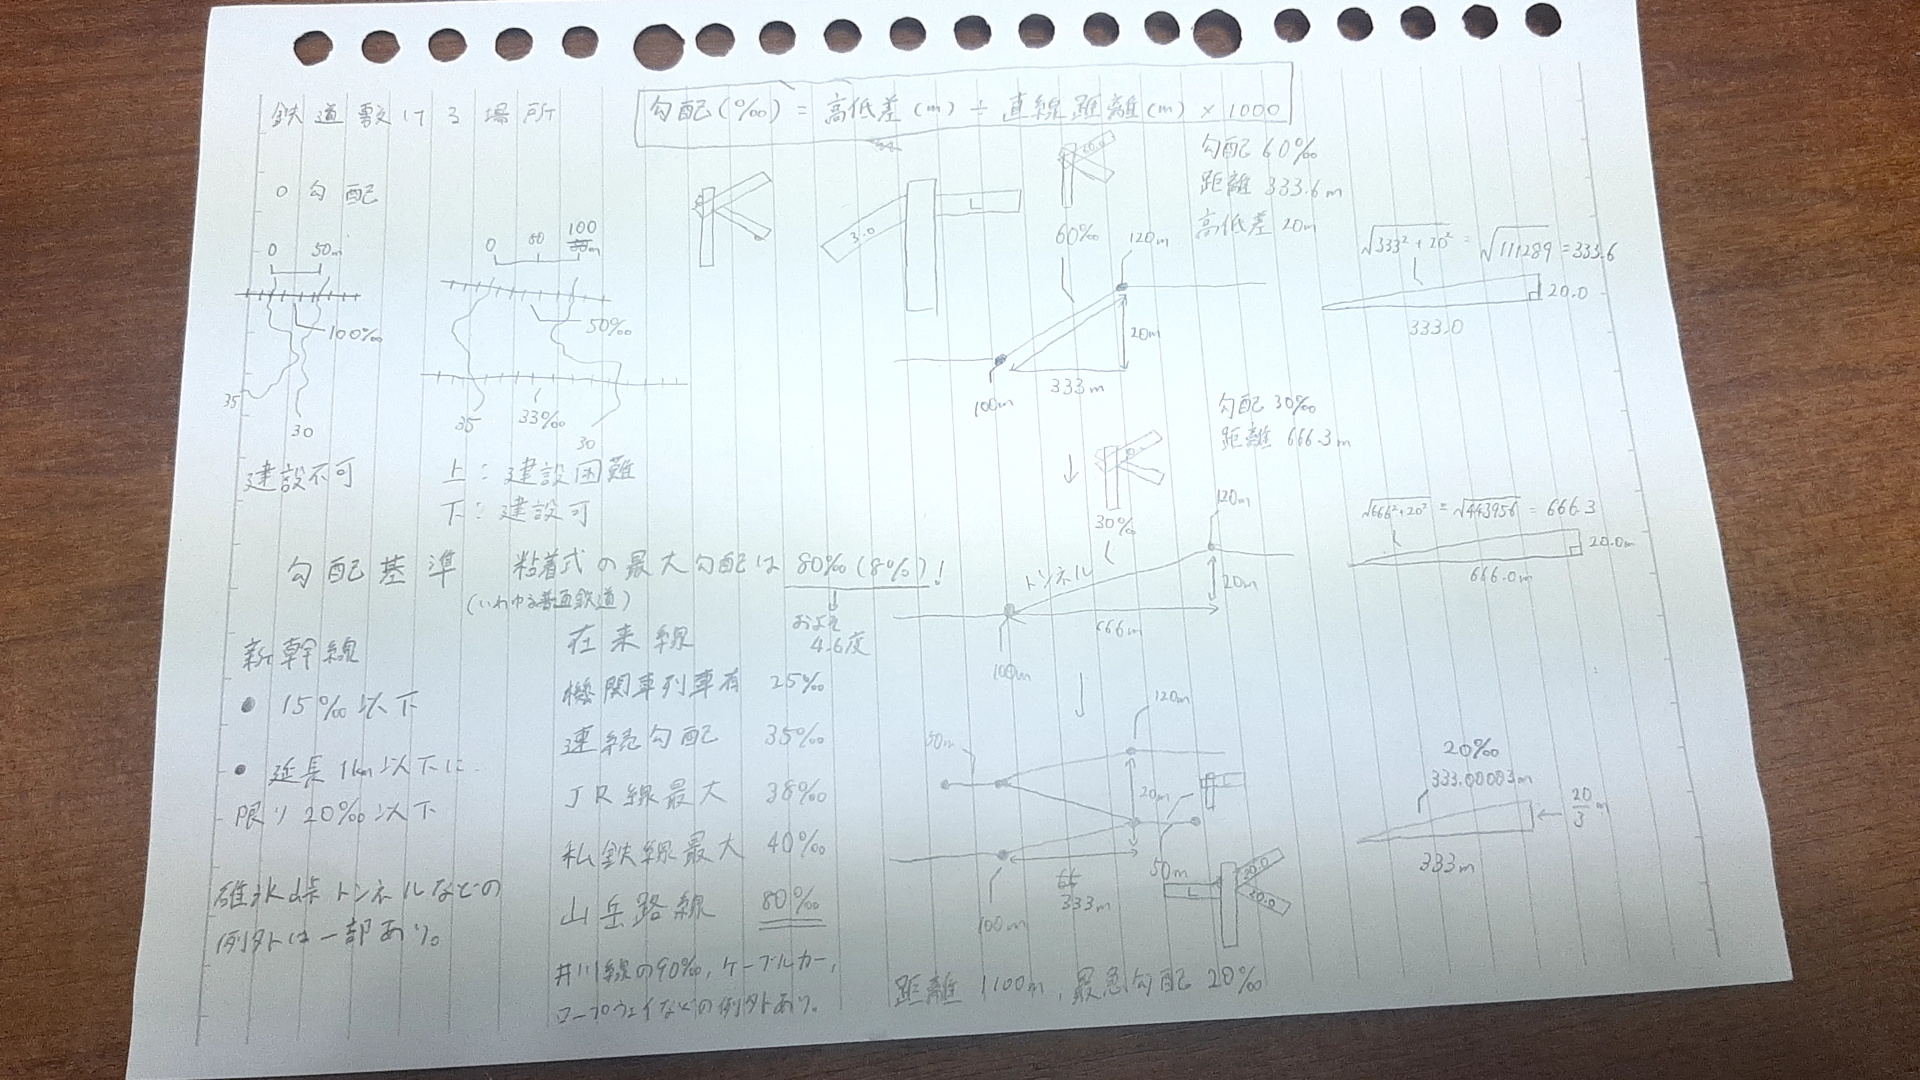 鉄道敷ける場所
勾配(‰) = 高低差(m) ÷ 直線距離(m) × 1000
○ 勾配
0 50m
100‰
35
30
建設不可
0 50 100
50‰
35 33‰ 30
上：建設困難
下：建設可
3.0
L
20.0
60‰
120m
20m
333m
100m
勾配 60‰
距離 333.6m
高低差 20m
√333²+20² = √111289 = 333.6
20.0
333.0
勾配 30‰
距離 666.3m
30‰
120m
トンネル
20m
666m
100m
√666²+20² = √443956 = 666.3
20.0m
666.0m
勾配基準
粘着式の最大勾配は 80‰(8%)！
(いわゆる普通鉄道)
およそ
4.6度
新幹線
● 15‰以下
● 延長1km以下に
限り20‰以下
碓氷峠トンネルなどの
例外は一部あり。
在来線
機関車列車有 25‰
連続勾配 35‰
JR線最大 38‰
私鉄線最大 40‰
山岳路線 80‰
井川線の90‰, ケーブルカー,
ロープウェイなどの例外あり。
50m
120m
20m
50m
333m
100m
L
20.0
20.0
20‰
333.00003m
20/3 m
333m
距離 1100m, 最急勾配 20‰